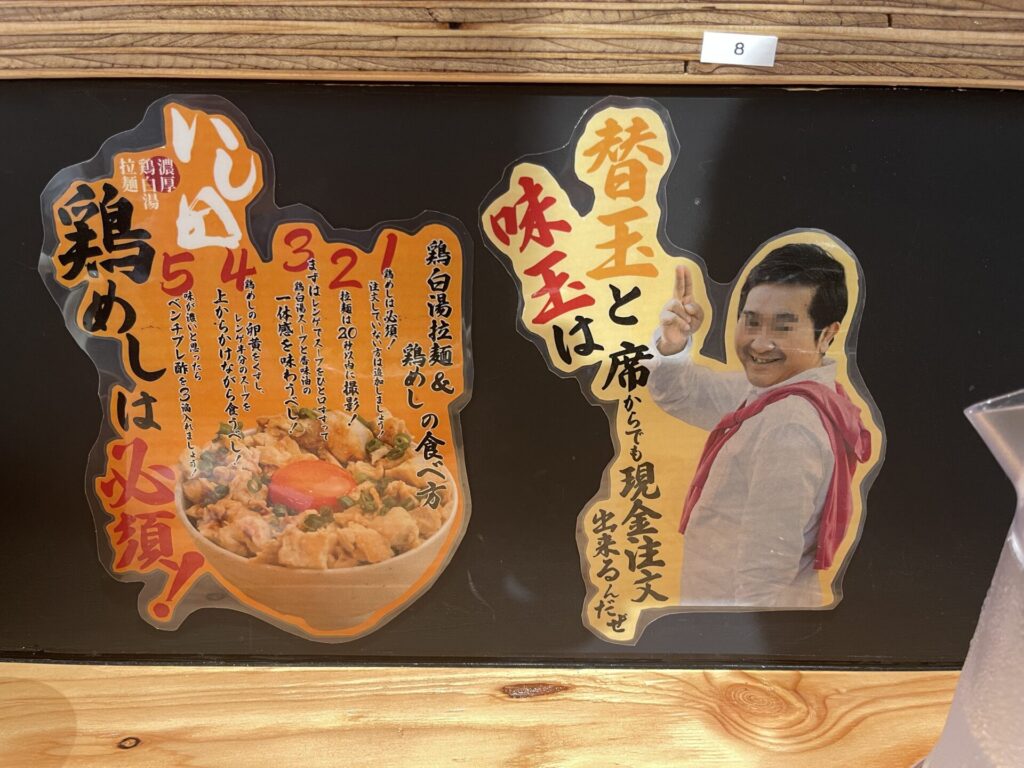 8
濃厚
鶏白湯
拉麺
いし田
鶏めしは
必須!
鶏白湯拉麺&
鶏めし
の食べ方
1
鶏めしは必須!
注文していない方は追加しましょう!
2
拉麺は20秒以内に撮影!
3
まずはレンゲでスープをひと口すすって
鶏白湯スープと香味油の
一体感を味わうべし!
4
鶏めしの卵黄をくずし、
レンゲ半分のスープを
上からかけながら食うべし!
5
味が濃いと思ったら
ペンチプレ酢を3滴入れましょう!
替玉と
味玉は
席からでも
現金注文
出来るんだぜ